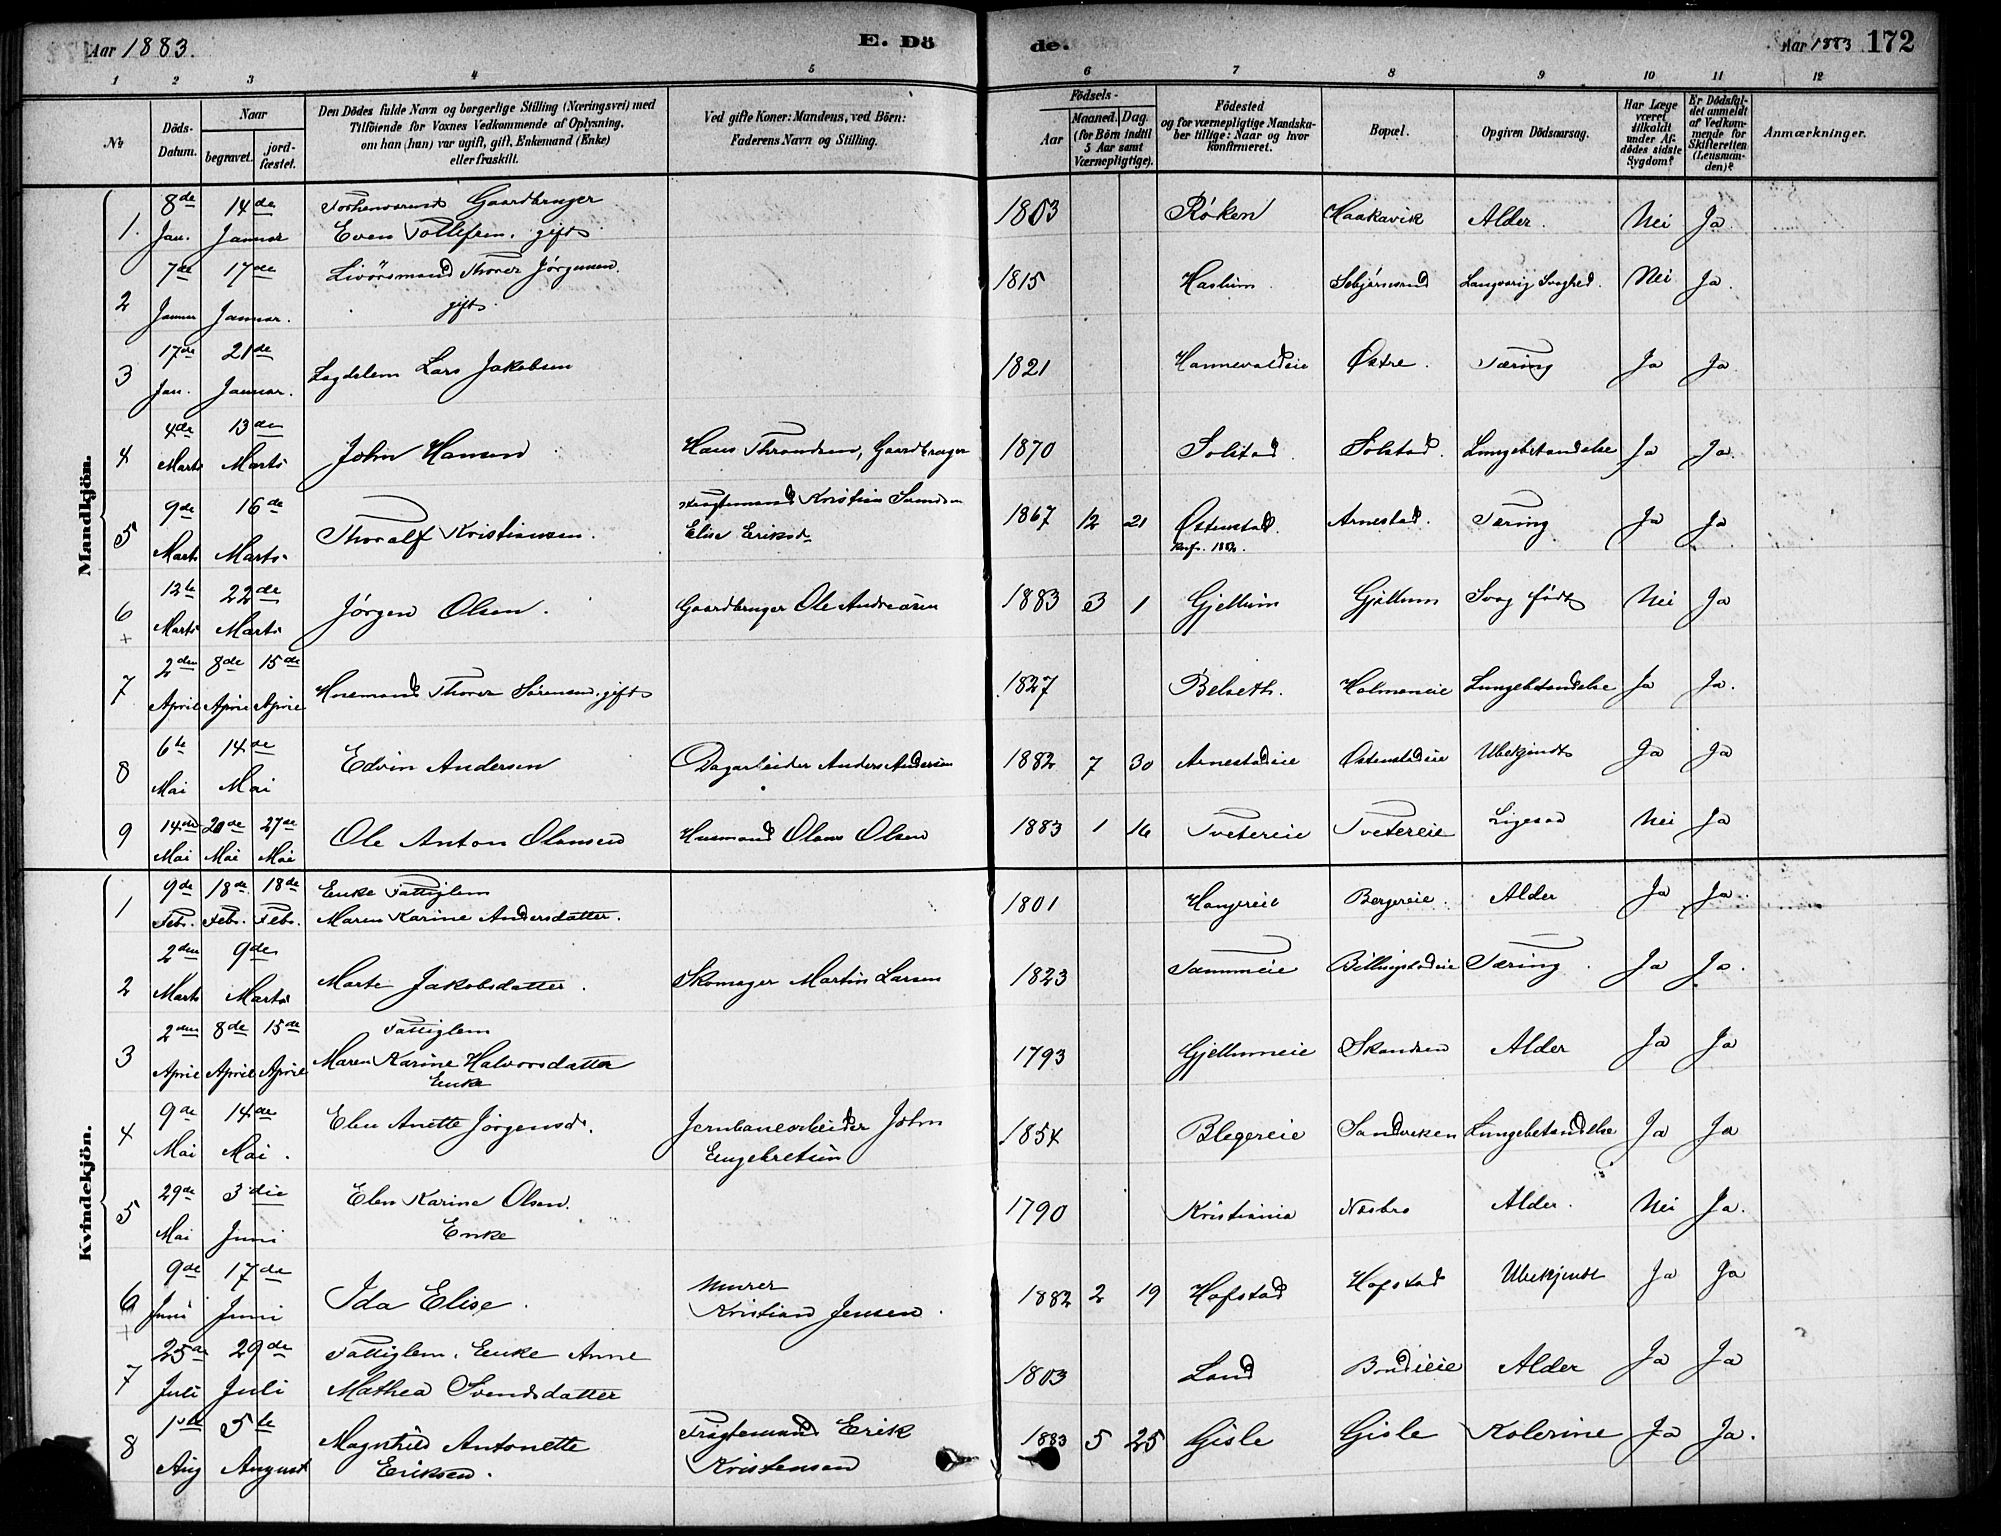 Aar 1883. E. Dö de. Aar 1883 172
1 2 3 4 5 6 7 8 9 10 11 12
No
Döds-Datum.
Naar
begravet. jordfæstet.
Den Dödes fulde Navn og borgerlige Stilling (Næringsvei) med
Tilföiende for Voxnes Vedkommende af Oplysning,
om han (hun) var ugift, gift, Enkemand (Enke)
eller fraskilt.
Ved gifte Koner: Mandens, ved Börn:
Faderens Navn og Stilling.
Födsels-
Aar Maaned. Dag.
(for Börn indtil
5 Aar samt
Værnepligtige).
Födested
og for værnepligtige Mandska-
ber tillige: Naar og hvor
konfirmeret.
Bopæl.
Opgiven Dödsaarsag.
Har Læge
været
tilkaldt
under Af-
dödes sidste
Sygdom?
Er Dödsfal-
det anmeldt
af Vedkom-
mende for
Skifteretten
(Lensman-
den)?
Anmærkninger.
Mandkjön.
1. 8de Jan. 14de Januar Gaardbruger Even Tollefsen. gift 1803 Røken Haakavik Alder. Nei Ja.
2 7de Januar 17de Januar. Thorer Jörgensen. gift. 1815 Haslum Langvarig Svaghed. Nei Ja.
3 17de Jan. 21de Januar. Lægdslem Lars Jakobsen 1821 Hannevoldeie Østre. Tæring Ja Ja.
4 4de Marts 13de Marts John Hansen Hans Throndsen, Gaardbruger 1870 Solstad. Solstad. Lungebetændelse Ja Ja.
5 9de Marts 16de Marts. Thoralf Kristiansen. Fragtemand Kristian Elise Eriksd. 1867 12 21 Østenstad. Arnestad. Tæring Ja Ja
6 + 12te Marts 22de Marts Jörgen Olsen. Gaardbruger Ole Andreasen 1883 3 1 Gjellum Gjellum Svag födt Nei Ja
7 2den April 8de April 15de April Husmand Thorer Sörensen. gift 1827 Belseth. Holmeneie Lungebetændelse Ja Ja.
8 6te Mai 14de Mai Edvin Andersen Dagarbeider Anders Andersen 1882 7 30 Arnestadeie Østenstadeie Ubekjendt Ja Ja
9 14de Mai 20de Mai 27de Mai Ole Anton Olausen Husmand Olaus Olsen 1883 1 16 Tvetereie Tvetereie Nei Ja
Kvindekjön.
1 9de Febr. 18de Febr. 18de Febr. Enke Fattiglem Maren Karine Andersdatter. 1801 Bergereie. Alder Ja Ja.
2 2den Marts 9de Marts Marte Jakobsdatter. Skomager Martin Larsen 1823 Billingstadeie Tæring. Ja Ja.
3 2den April 8de April 15de April Fattiglem Maren Karine Halvorsdatter Enke 1793 Gjellumeie Skandsen Alder Ja Ja
4 9de Mai 14de Mai. Elen Anette Jörgensd. Jernbanearbeider John Engebretsen 1854 Blegereie Sandviken Lungebetændelse Ja Ja
5 29de Mai 3die Juni Elen Karine Olsen. Enke 1790 Kristiania Næsbro Alder. Nei Ja.
6 + 9de Juni 17de Juni Ida Elise. Murer Kristian Jensen. 1882 2 19 Hofstad Hofstad Ubekjendt Ja Ja
7 25de Juli 29de Juli Fattiglem. Enke Anne Mathea Svendsdatter 1803 Land Bondieie Alder Ja Ja
8 1ste Aug 5te August Magnhild Antonette Eriksen. Fragtemand Erik Kristensen 1883 5 25 Gisle Gisle Kolerine Ja Ja.